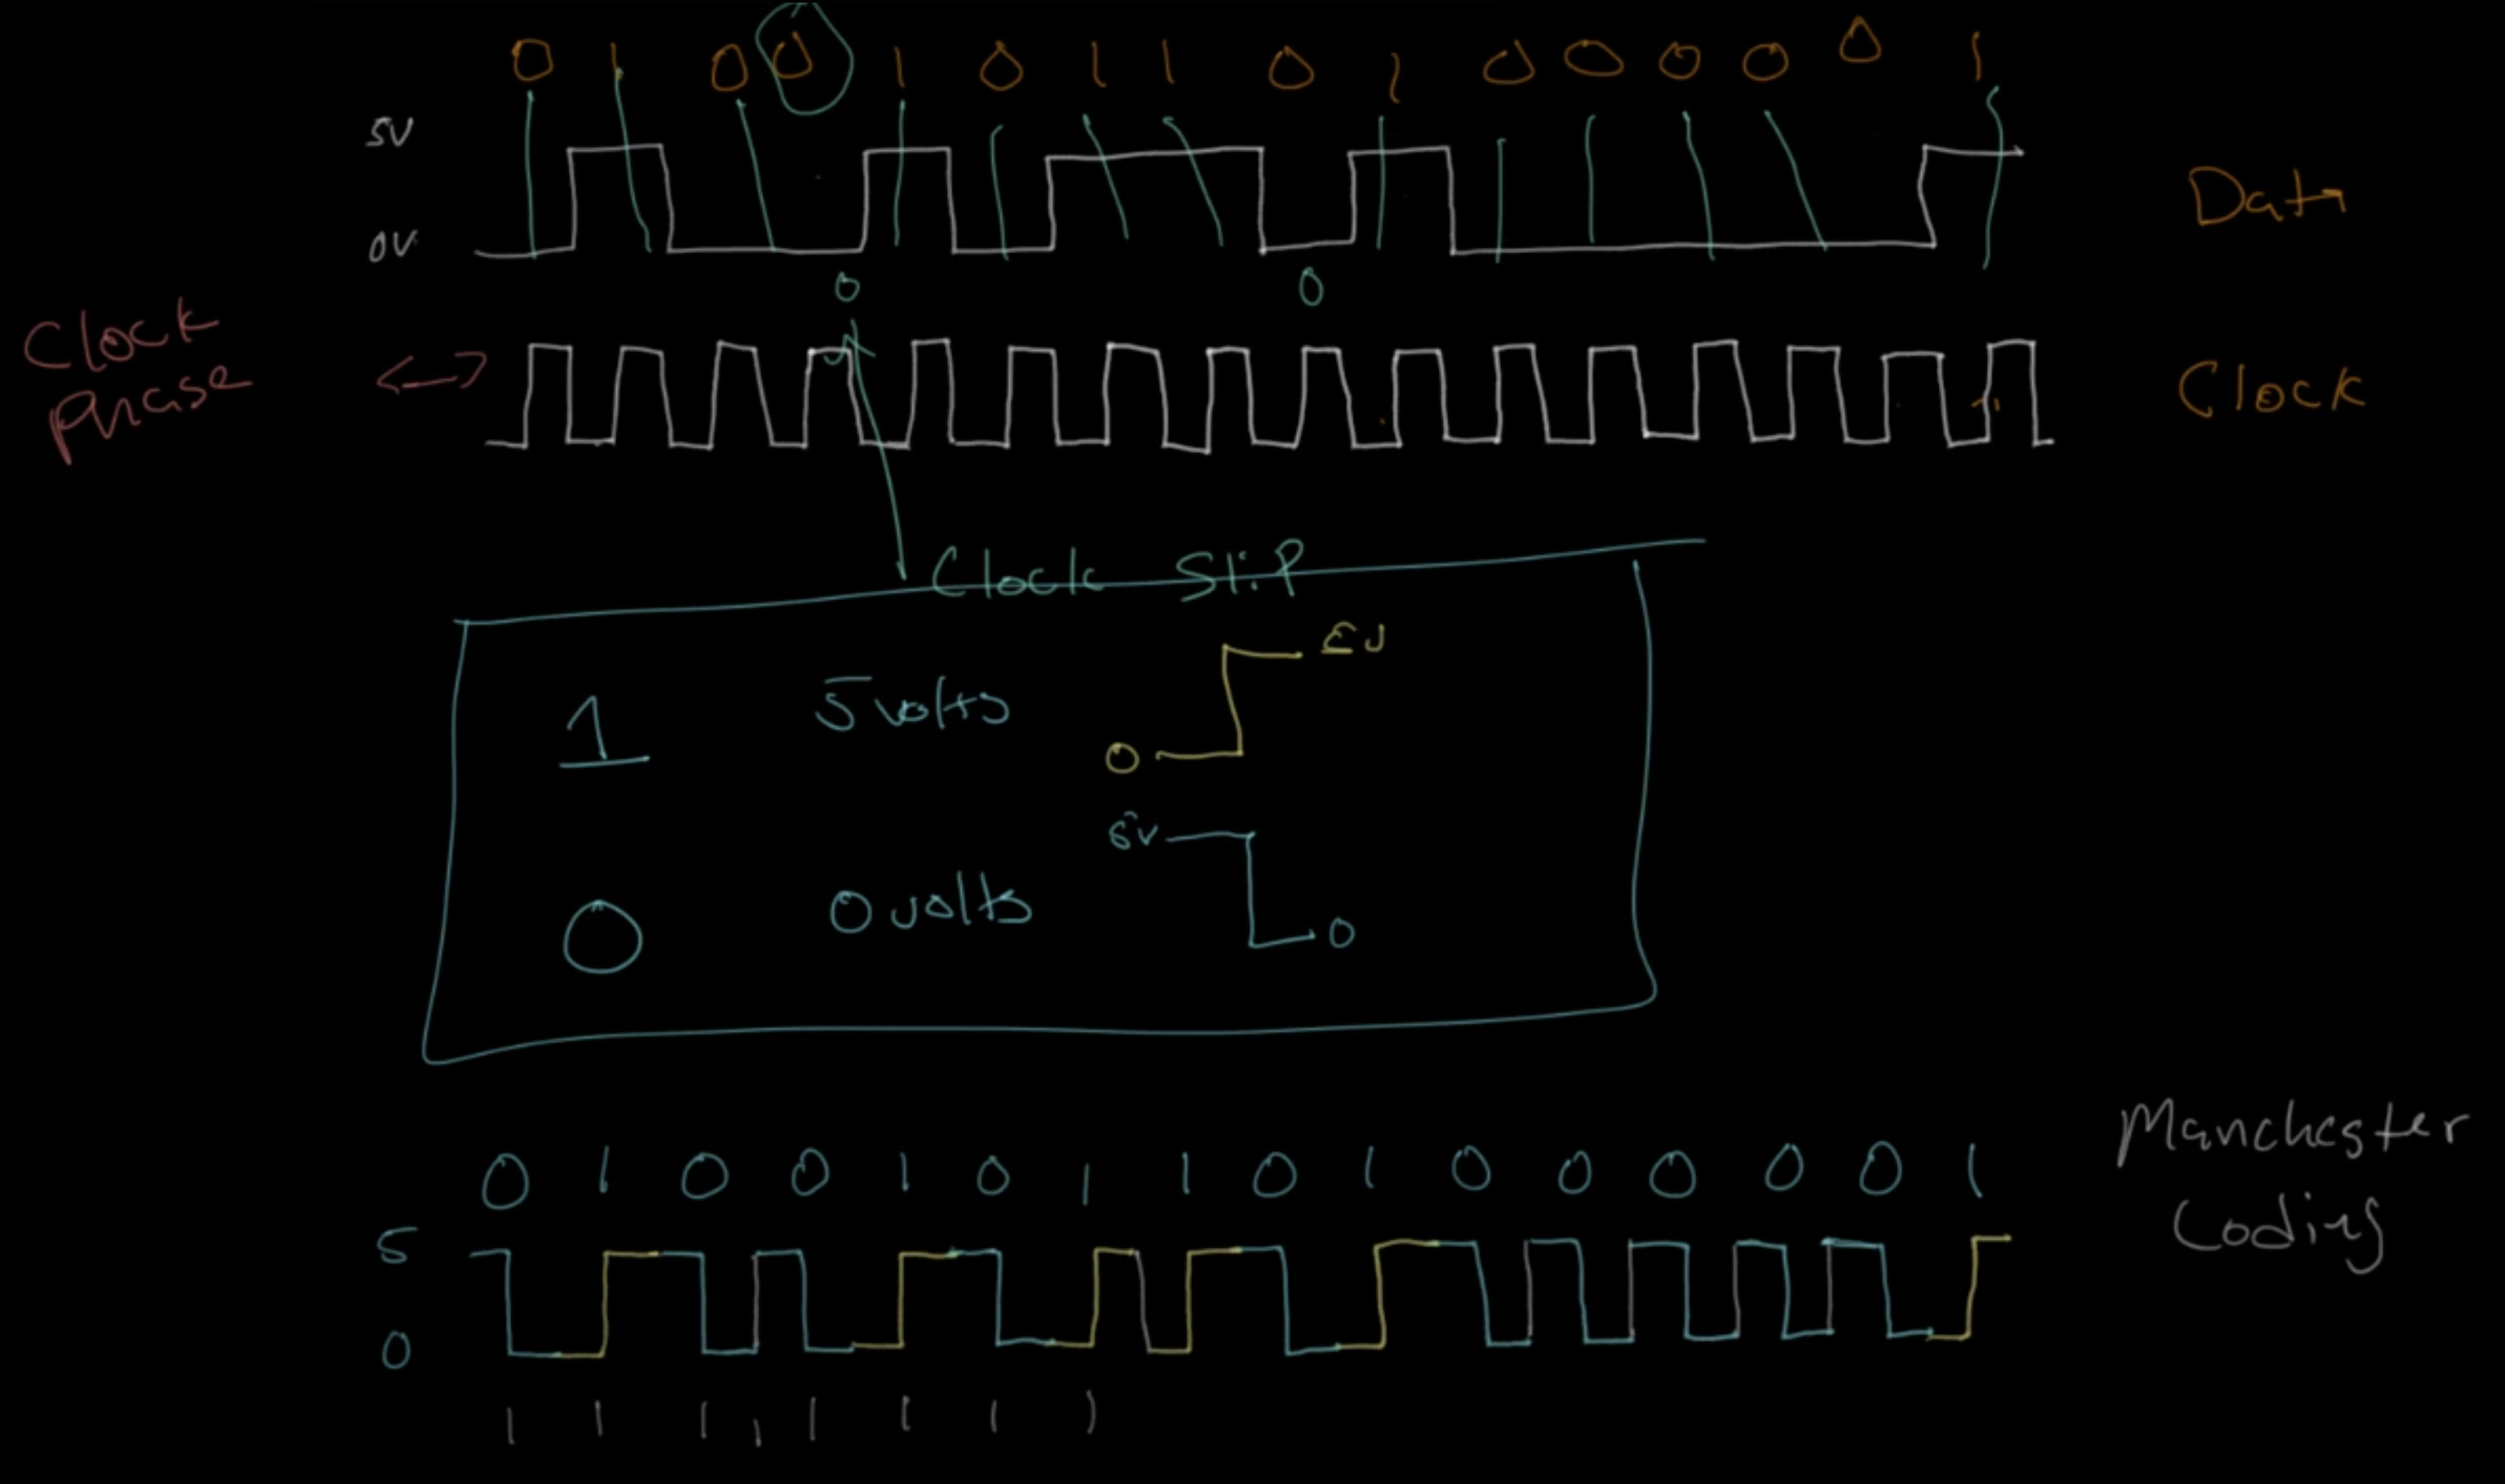 0 1 0 0 1 0 1 1 0 1 0 0 0 0 0 1
5V
0V
Data
0 0
Clock
Phase
Clock
Clock Slip
1 5 volts 0 5v
0 0 volts 5v 0
Manchester
Coding
0 1 0 0 1 0 1 1 0 1 0 0 0 0 0 1
5
0